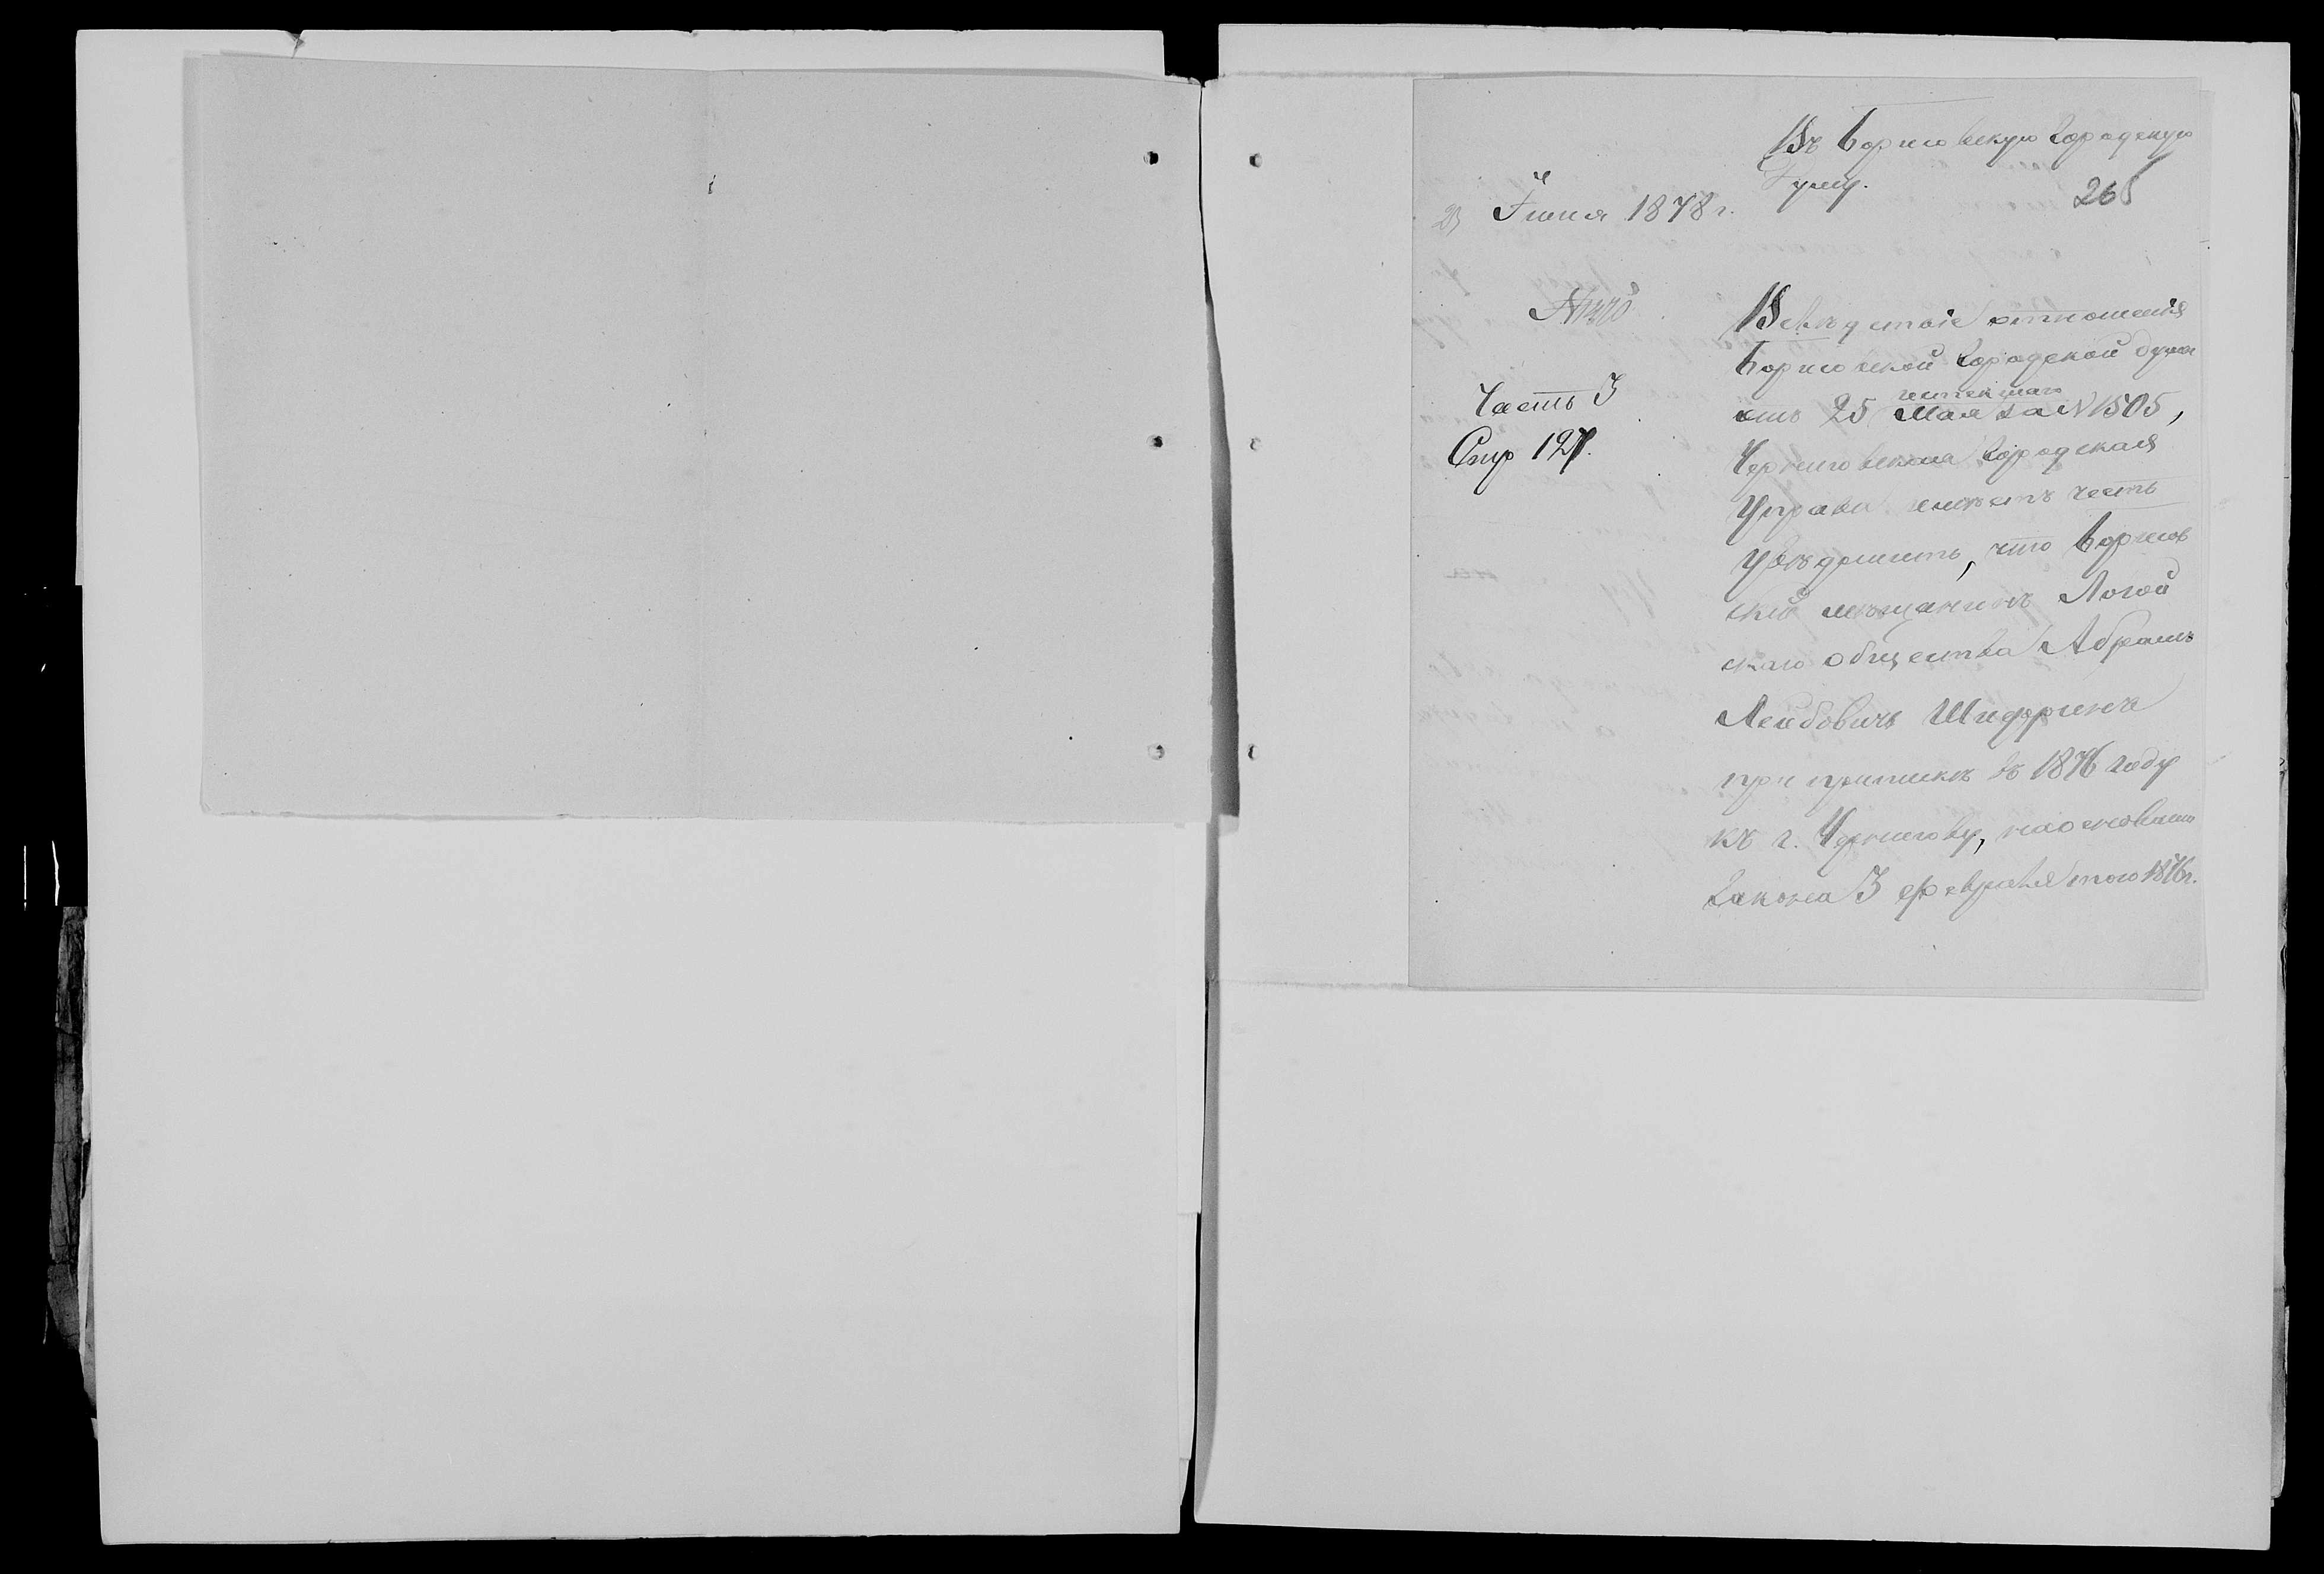 Въ Борисовскую Городскую
Думу.
265
23 Іюня 1878 г.
Часть 3
Стр 127.
Вслѣдствіе отношенія
Борисовской Городской думы
истекшаго
отъ 25 Мая за N 1505,
Черниговская Городская
Управа имѣетъ честь
увѣдомить, что Борисов
скій мѣщанинъ Логой
скаго общества Абрамъ
Лейбовичъ Шифринъ
при припискѣ въ 1876 году
къ г. Чернигову, на основаніи
Закона 3 февраля того 1876 г.